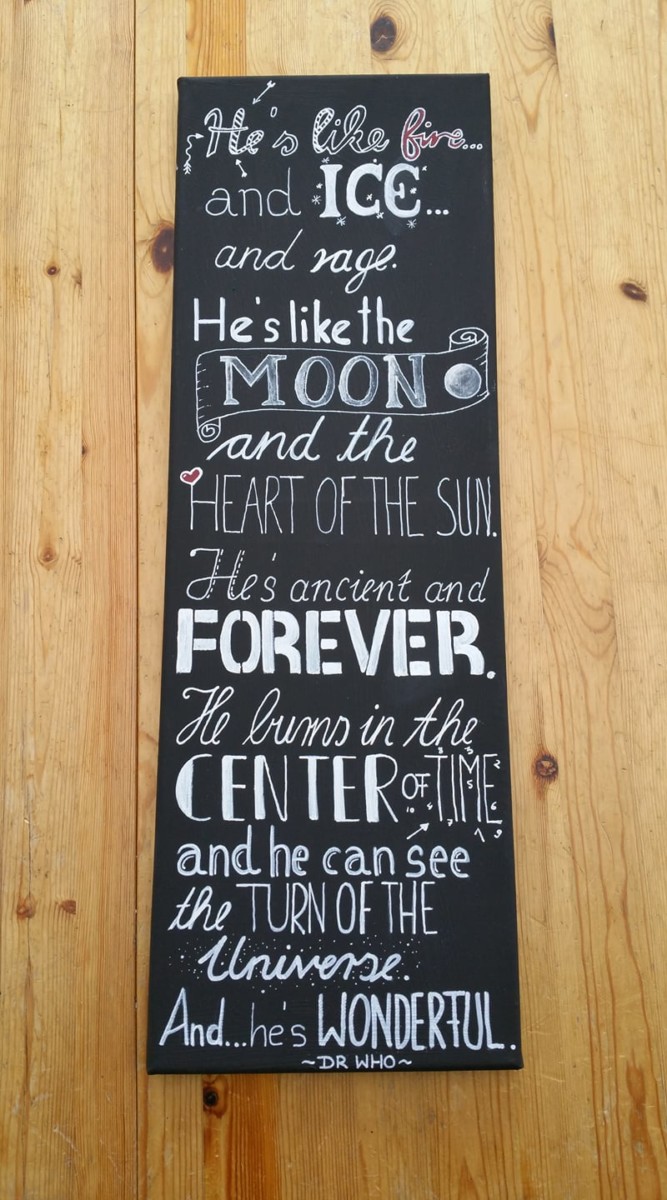 He's like fire...
and ICE...
and rage.
He's like the
MOON
and the
HEART OF THE SUN.
He's ancient and
FOREVER.
He burns in the
CENTER OF TIME
and he can see
the TURN OF THE
Universe.
And...he's WONDERFUL.
~DR WHO~